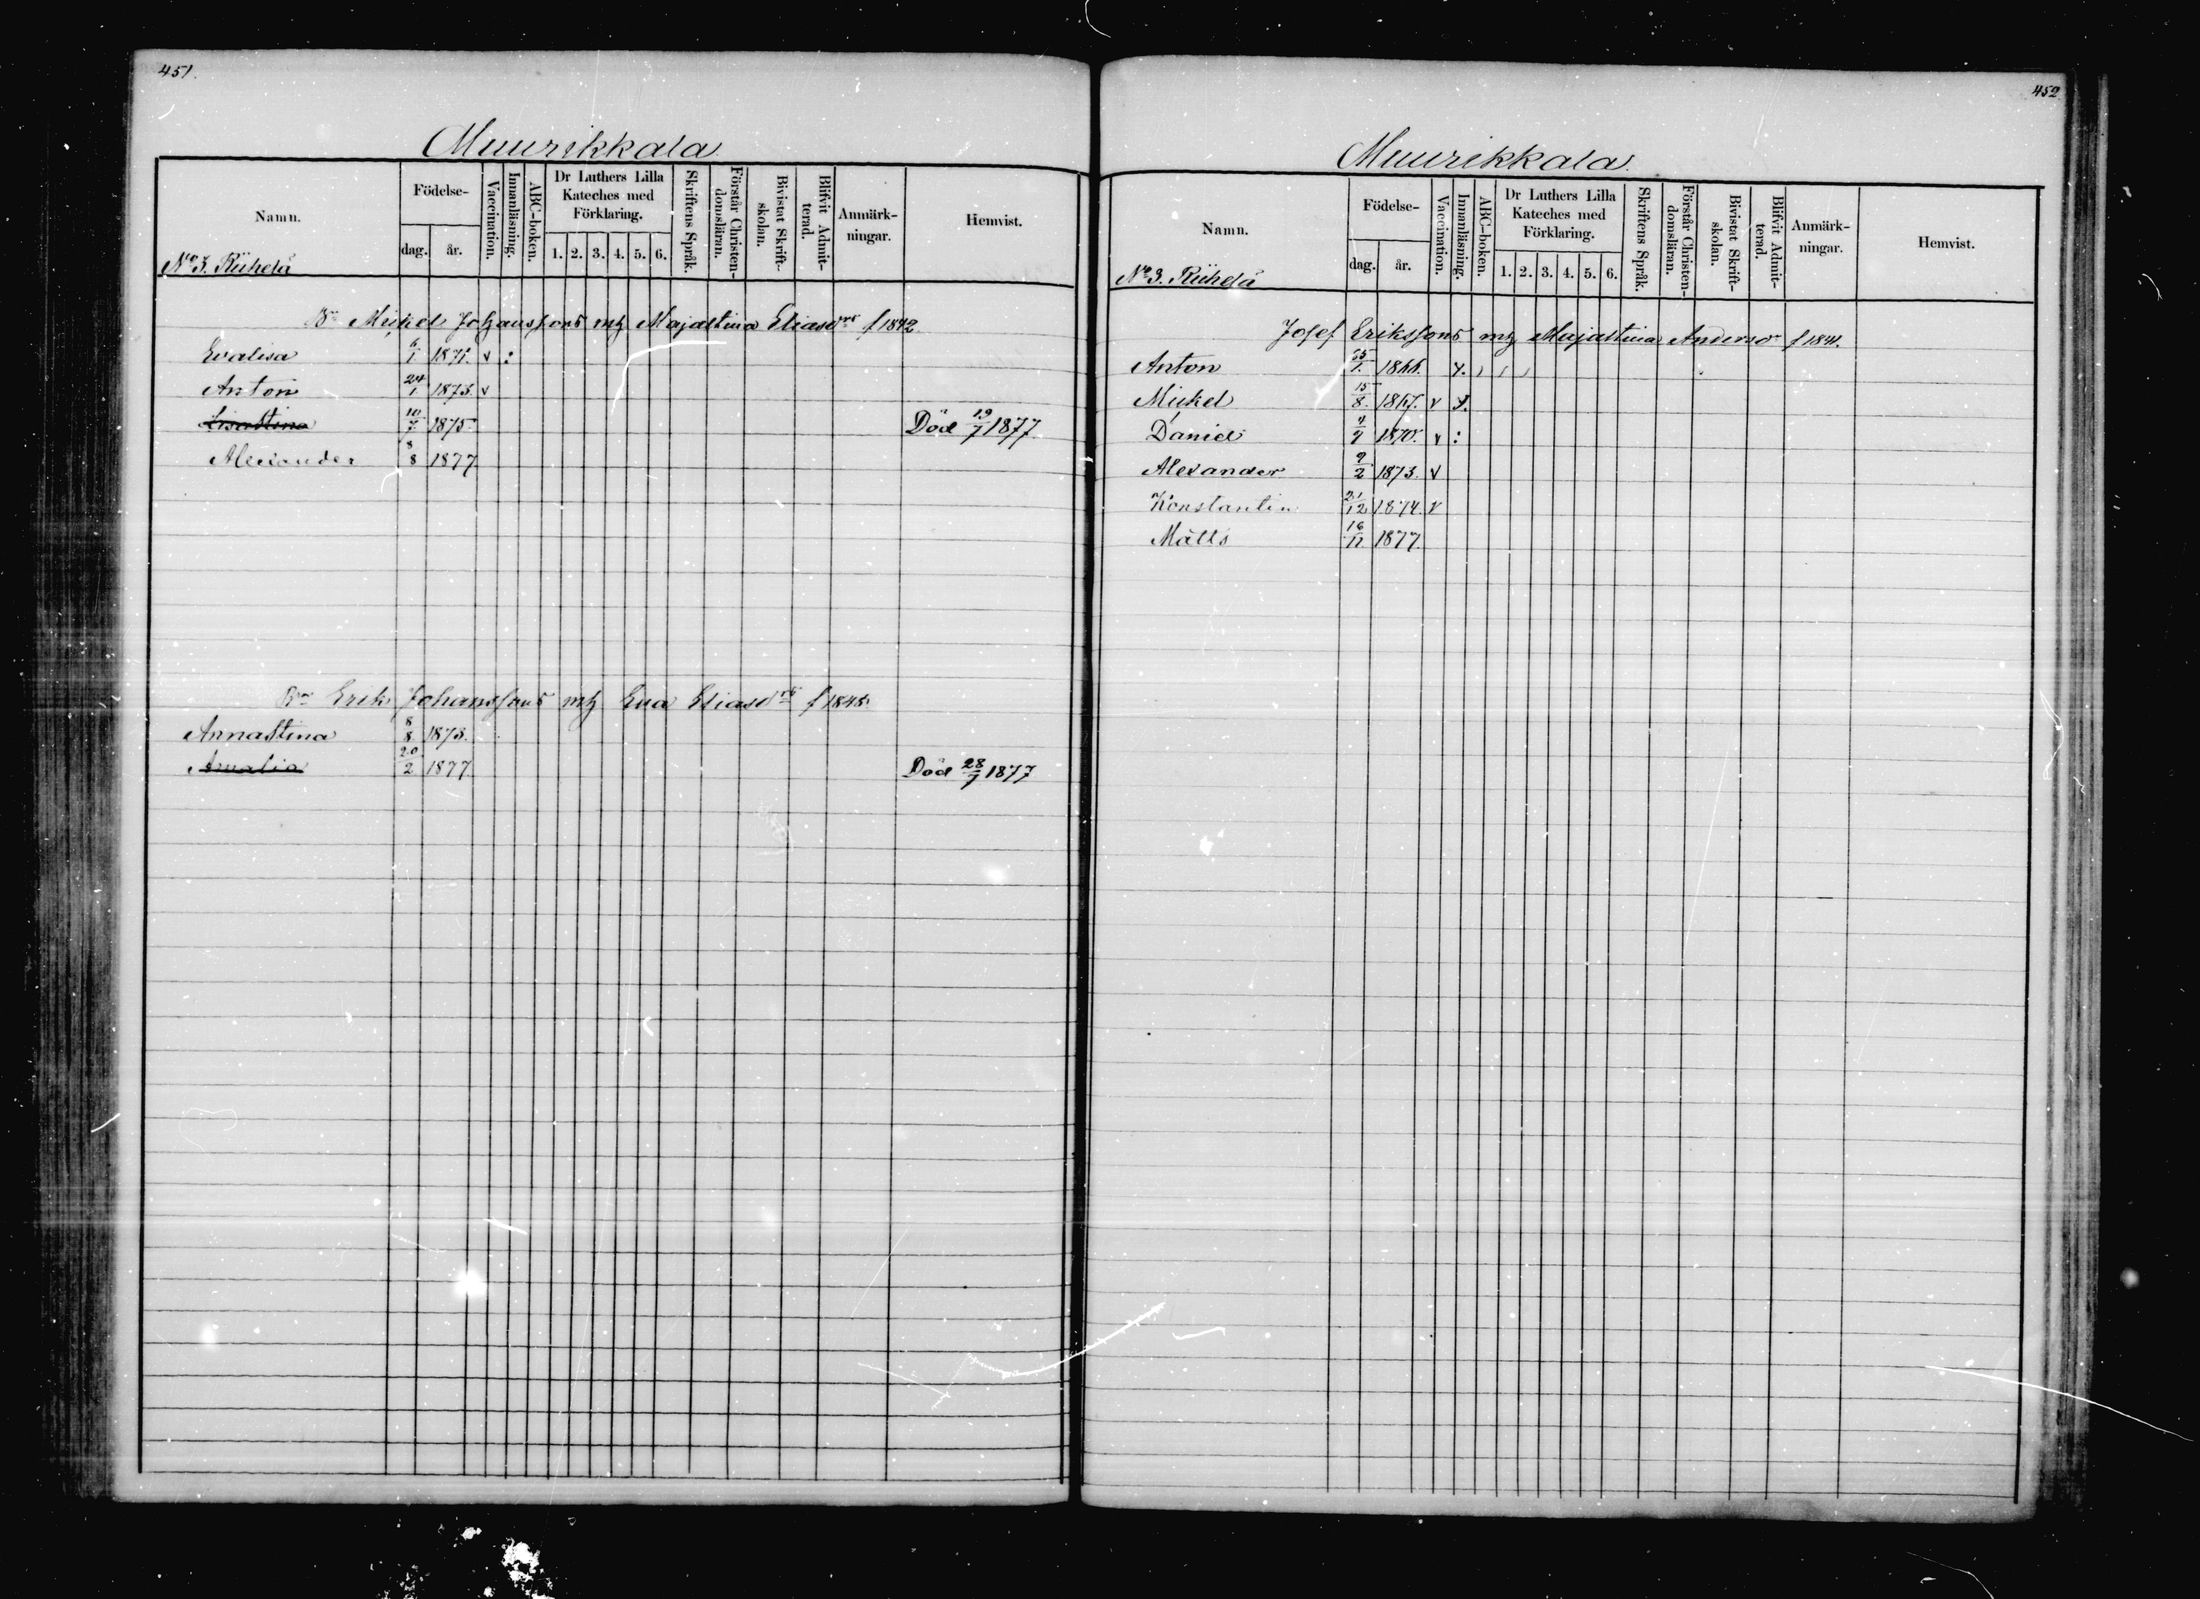 451.
Muurikkala.
Namn.
Födelse-
dag. år.
Vaccination.
Innanläsning.
ABC-boken.
Dr Luthers Lilla Kateches med Förklaring.
1. 2. 3. 4. 5. 6.
Skriftens Språk.
Förstår Christen-domsläran.
Bivistat Skrift-skolan.
Blifvit Admit-terad.
Anmärk-ningar.
Hemvist.
No 3. Riihelä
Br Mickel Johanssons mh Majastina Eliasdrs f 1842
Evalisa 6/1 1871. v :
Anton 24/1 1873. v
Lisastina 10/7 1875. Död 19/7 1877.
Alexander 8/8 1877
Br Erik Johanssons mh Eva Eliasdrs f 1848.
Annastina 8/8 1873.
Amalia 20/2 1877. Död 28/7 1877
452
Muurikkala.
Namn.
Födelse-
dag. år.
Vaccination.
Innanläsning.
ABC-boken.
Dr Luthers Lilla Kateches med Förklaring.
1. 2. 3. 4. 5. 6.
Skriftens Språk.
Förstår Christen-domsläran.
Bivistat Skrift-skolan.
Blifvit Admit-terad.
Anmärk-ningar.
Hemvist.
No 3. Riihelä
Josef Erikssons mh Majastina Andersdr f 1841.
Anton 25/1. 1866.
Mickel 15/8. 1867. v
Daniel 1870. v :
Alexander 9/2 1873. v
Konstantin 21/12 1874. v
Matts 16/11. 1877.